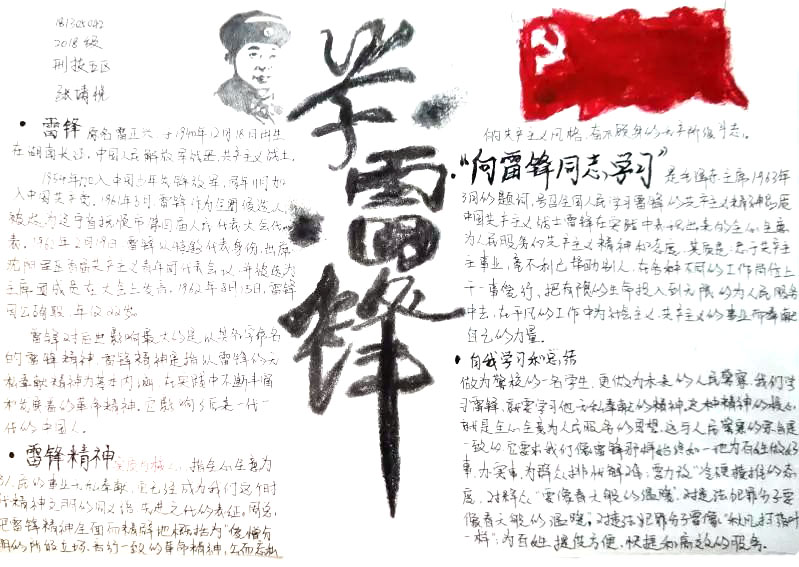 2018级
刑技五区
学雷锋
• 雷锋 原名雷正兴 于1940年12月18日出生
在湖南长沙,中国人民解放军战士,共产主义战士
入中国共产党,1961年5月,雷锋作为全国候选人
被选为辽宁省抚顺市第四届人民代表大会代
表。1962年2月19日,雷锋以特邀代表身份,出席
沈阳军区首届共产主义青年团代表会议,并被选为
主席团成员在大会上发言。1962年8月15日,雷锋
因公殉职,年仅22岁。
雷锋对后世影响最大的是以其名字命名
的雷锋精神。雷锋精神是指以雷锋的无
私奉献精神为基本内涵,在实践中不断丰富
和发展着的革命精神,它影响了后来一代一
代的中国人。
• 雷锋精神 指全心全意为
人民的事业无私奉献,
把雷锋精神全面而精辟地概括为“憎爱分
明的阶级立场、言行一致的革命精神、公而忘私
的共产主义风格、奋不顾身的无产阶级斗志。
• “向雷锋同志学习” 是毛泽东主席1963年
3月的题词,号召全国人民学习雷锋的共产主义精神。
中国共产主义战士雷锋在实践中表现出来的全心全意
为人民服务的共产主义精神和态度,其实质是:忠于共产主
主事业,毫不利己帮助别人,在各种不同的工作岗位上
干一事爱行,把有限的生命投入到无限的为人民服务
中去,在平凡的工作中为社会主义、共产主义的事业而奉献
自己的力量。
• 自我学习和总结
做为警校的一名学生,更做为未来的人民警察,我们学
习雷锋,就要学习他无私奉献的精神,这种精神的核心
就是全心全意为人民服务的思想,这与人民警察的宗旨是
一致的,它要求我们像雷锋那样始终如一地为百姓做好
事,办实事,为群众排忧解难,要力改“冷硬横推”的态
度,对群众“要像春天般的温暖”,对违法犯罪分子要
像春天般的温暖”,对违法犯罪分子要像“秋风扫落叶
一样”;为百姓提供方便、快捷和高效的服务。